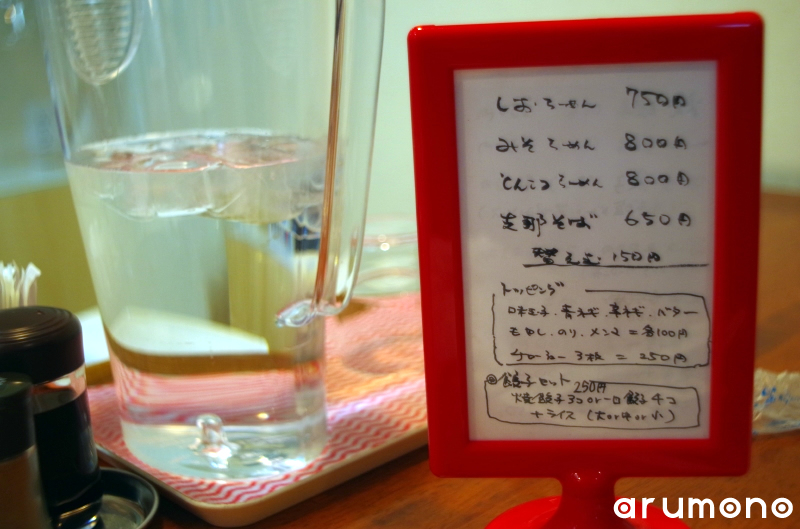 しおらーめん 750円
みそらーめん 800円
とんこつらーめん 800円
支那そば 650円
替え玉 150円
トッピング
味玉子・青ネギ・辛ネギ・バター
もやし・のり・メンマ = 各100円
チャーシュー3枚 = 250円
◎餃子セット 250円
焼餃子3コor一口餃子4コ
+ライス(大or中or小)
arumono